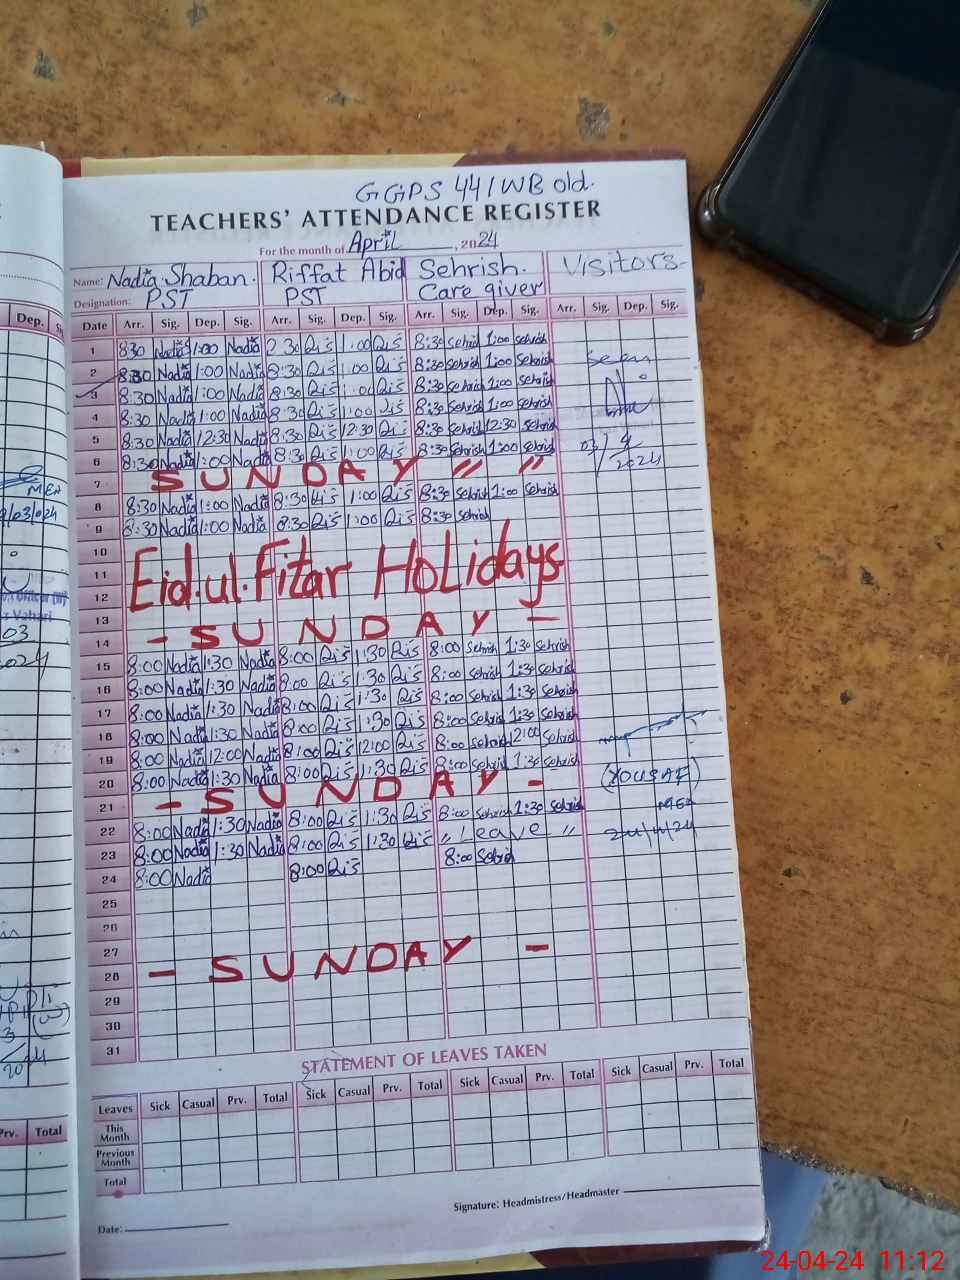 GGPS 44/WB old.
TEACHERS' ATTENDANCE REGISTER
For the month of April, 2024
Name: Nadia Shaban. Riffat Abid Sehrish. Visitors
Designation: PST PST Care giver
Date Arr. Sig. Dep. Sig. Arr. Sig. Dep. Sig. Arr. Sig. Dep. Sig. Arr. Sig. Dep. Sig.
1 830 Nadia 1:00 Nadia 1:00 8:30 Sehrish 1:00 Sehrish
2 8:30 Nadia 1:00 Nadia 8:30 1:00 8:30 Sehrish 1:00 Sehrish
3 8:30 Nadia 1:00 Nadia 8:30 1:00 8:30 Sehrish 1:00 Sehrish
4 8:30 Nadia 1:00 Nadia 8:30 1:00 8:30 Sehrish 1:00 Sehrish
5 8:30 Nadia 12:30 Nadia 8:30 12:30 8:30 Sehrish 12:30 Sehrish
6 8:30 Nadia 1:00 Nadia 8:30 1:00 8:30 Sehrish 1:00 Sehrish
03/4
2024
7 SUNDAY " "
8 8:30 Nadia 1:00 Nadia 8:30 1:00 8:30 Sehrish 1:00 Sehrish
9 8:30 Nadia 1:00 Nadia 8:30 1:00 8:30 Sehrish
10
11 Eid.ul.Fitar Holidays
12
13
14 - SUNDAY -
15 8:00 Nadia 1:30 Nadia 8:00 1:30 8:00 Sehrish 1:30 Sehrish
16 8:00 Nadia 1:30 Nadia 8:00 1:30 8:00 Sehrish 1:30 Sehrish
17 8:00 Nadia 1:30 Nadia 8:00 1:30 8:00 Sehrish 1:30 Sehrish
18 8:00 Nadia 1:30 Nadia 8:00 1:30 8:00 Sehrish 1:30 Sehrish
19 8:00 Nadia 12:00 Nadia 8:00 12:00 8:00 Sehrish 12:00 Sehrish
20 8:00 Nadia 1:30 Nadia 8:00 1:30 8:00 Sehrish 1:30 Sehrish
(YOUSAF)
MEA
21 - SUNDAY -
22 8:00 Nadia 1:30 Nadia 8:00 1:30 8:00 Sehrish 1:30 Sehrish
23 8:00 Nadia 1:30 Nadia 8:00 1:30 " Leave "
24 8:00 Nadia 8:00 8:00 Sehrish
25
26
27
28 - SUNDAY -
29
30
31
STATEMENT OF LEAVES TAKEN
Leaves Sick Casual Prv. Total Sick Casual Prv. Total Sick Casual Prv. Total Sick Casual Prv. Total
This Month
Previous Month
Total
Signature: Headmistress/Headmaster
Date:
Dep.
MEA
03
Prv. Total
24-04-24 11:12